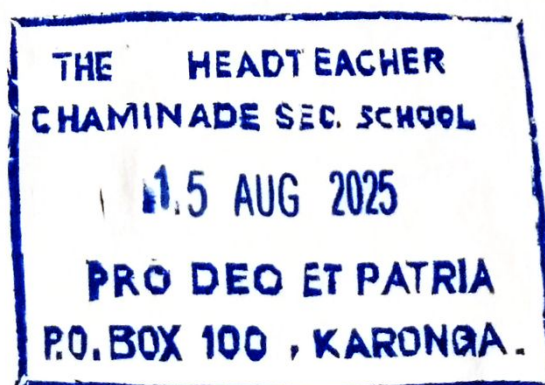 THE HEADTEACHER
CHAMINADE SEC. SCHOOL
15 AUG 2025
PRO DEO ET PATRIA
P.O. BOX 100 , KARONGA.